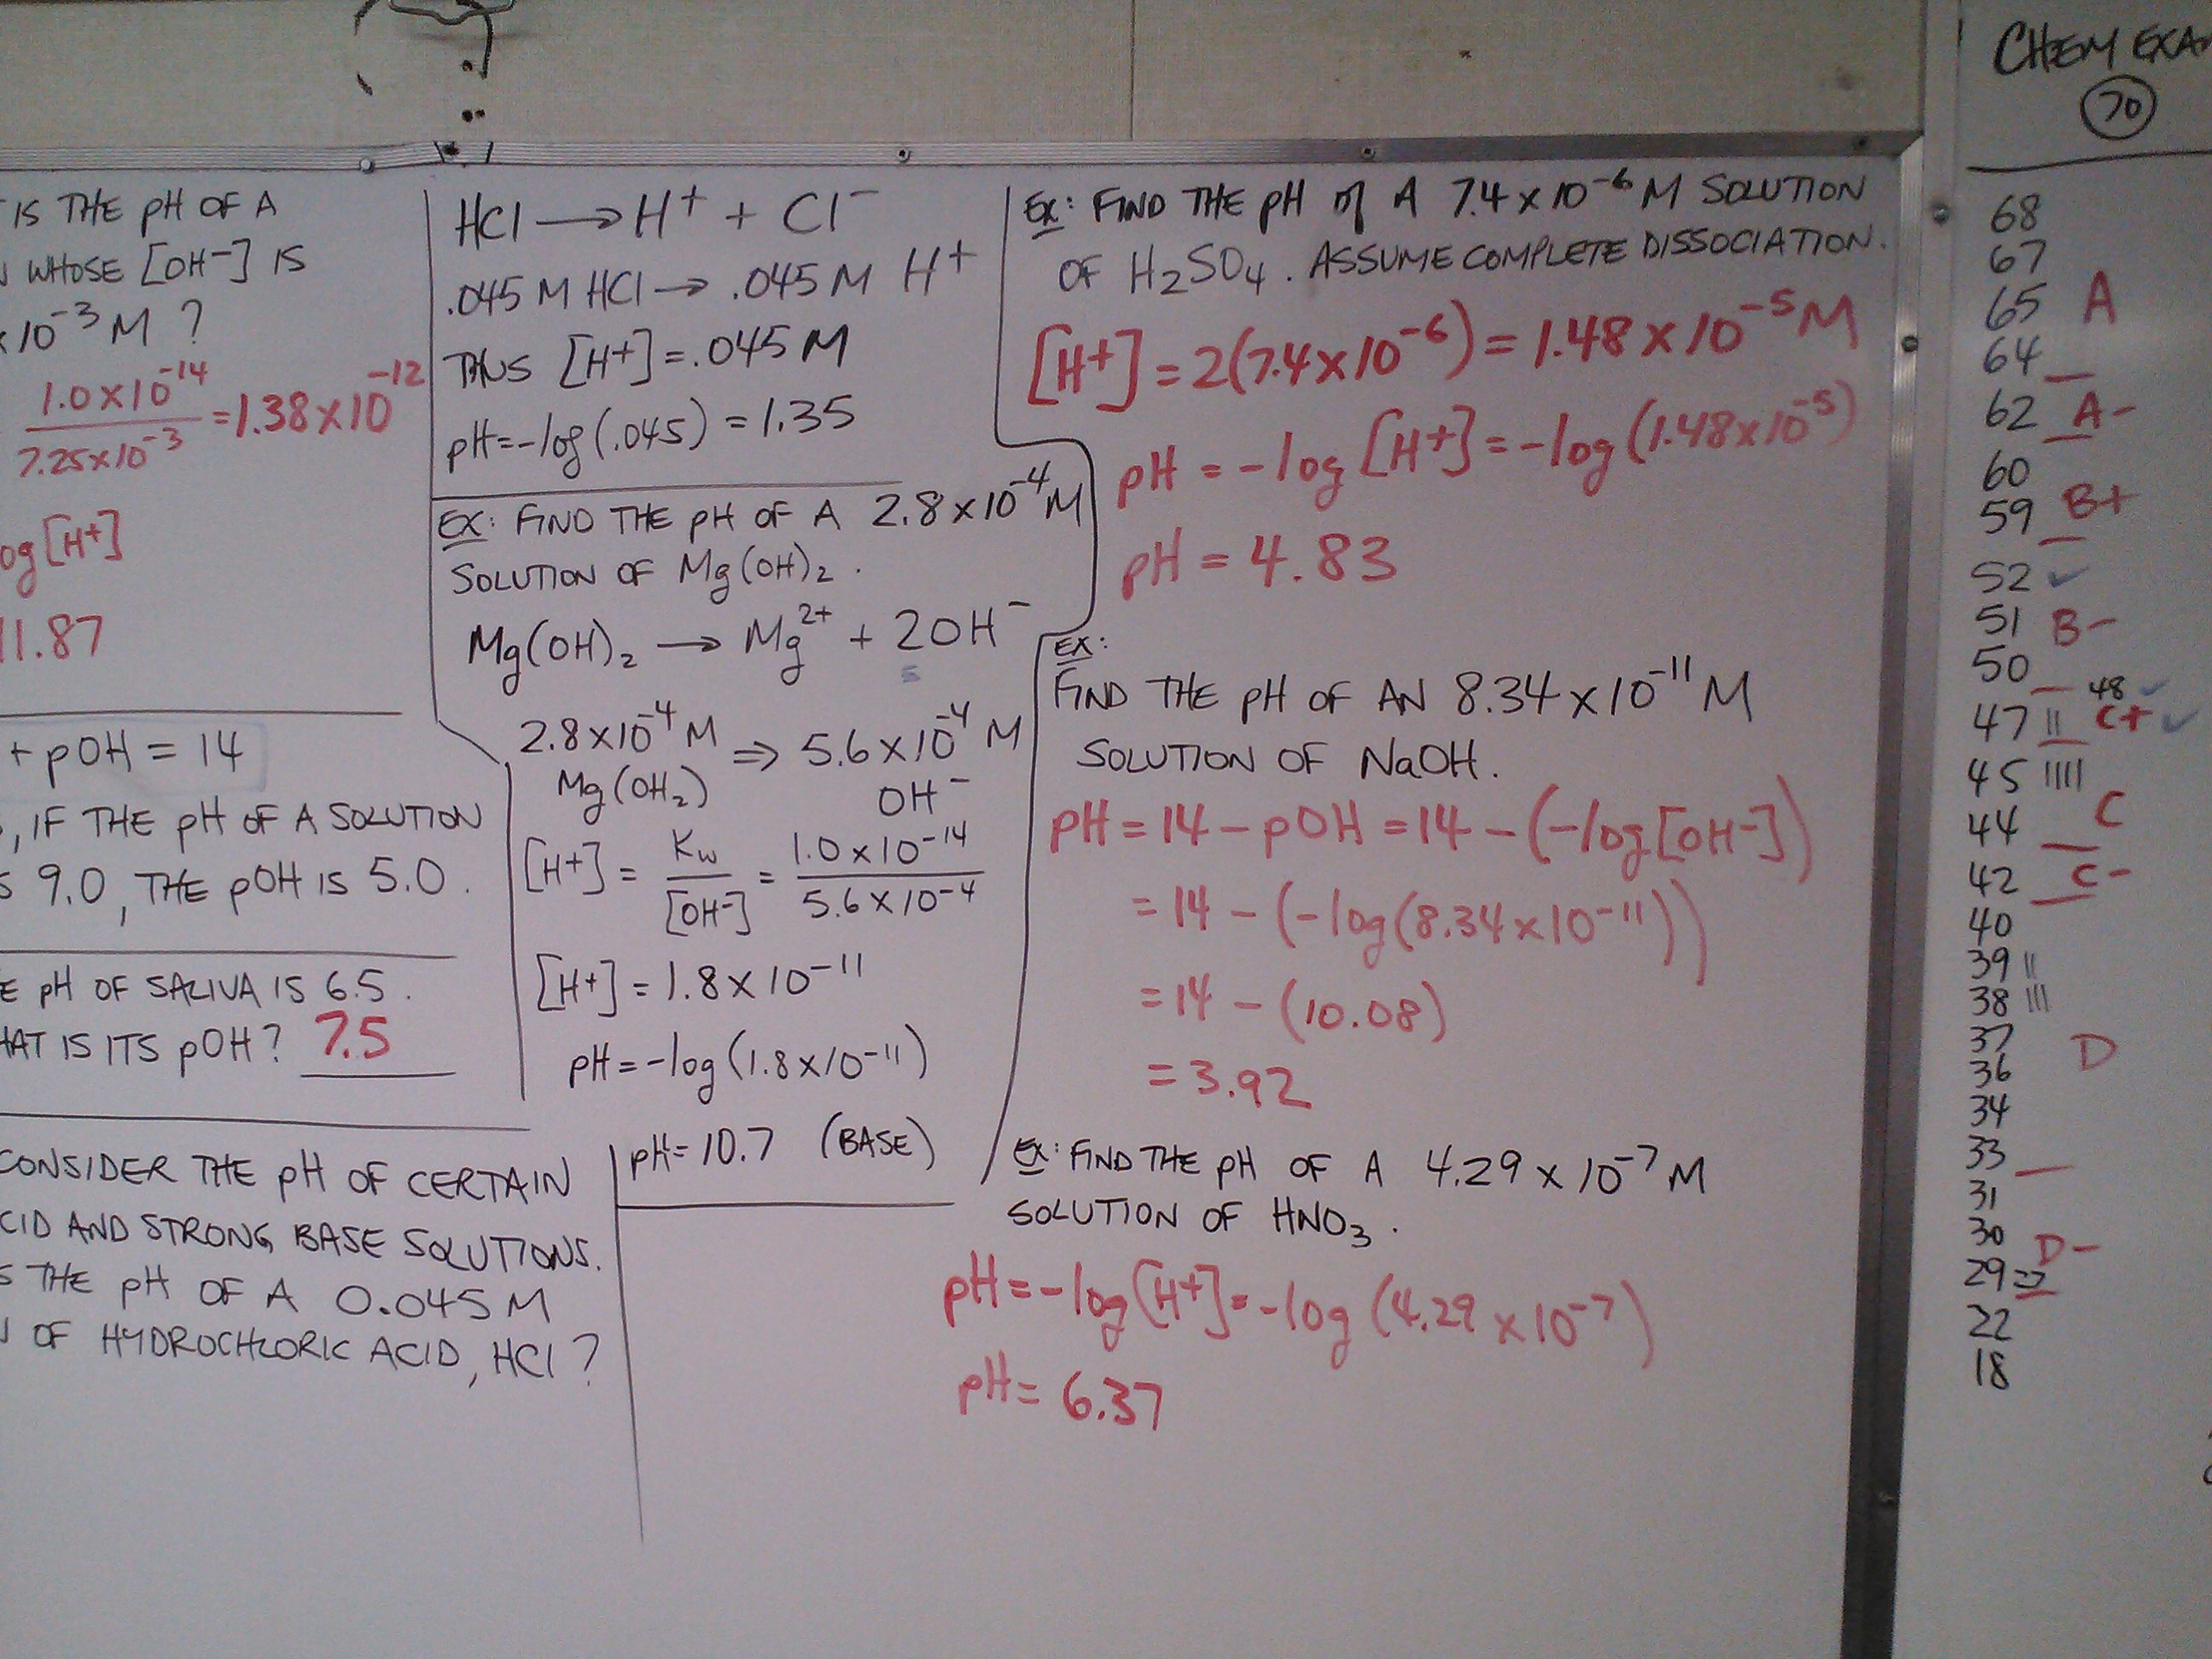 IS THE pH OF A
WHOSE [OH⁻] IS
×10⁻³ M ?
1.0×10⁻¹⁴
7.25×10⁻³
=1.38×10⁻¹²
og[H⁺]
11.87
+ pOH = 14
, IF THE pH OF A SOLUTION
S 9.0, THE pOH IS 5.0.
E pH OF SALIVA IS 6.5.
HAT IS ITS pOH? 7.5
CONSIDER THE pH OF CERTAIN
CID AND STRONG BASE SOLUTIONS.
S THE pH OF A 0.045 M
OF HYDROCHLORIC ACID, HCl ?
HCl → H⁺ + Cl⁻
.045 M HCl → .045 M H⁺
THUS [H⁺] = .045 M
pH = -log(.045) = 1.35
EX: FIND THE pH OF A 2.8×10⁻⁴ M
SOLUTION OF Mg(OH)₂.
Mg(OH)₂ → Mg²⁺ + 2OH⁻
2.8×10⁻⁴ M ⇒ 5.6×10⁻⁴ M
Mg(OH₂) OH⁻
[H⁺] = Kw/[OH⁻] = 1.0×10⁻¹⁴/5.6×10⁻⁴
[H⁺] = 1.8×10⁻¹¹
pH = -log(1.8×10⁻¹¹)
pH = 10.7 (BASE)
EX: FIND THE pH of A 7.4×10⁻⁶ M SOLUTION
OF H₂SO₄. ASSUME COMPLETE DISSOCIATION.
[H⁺] = 2(7.4×10⁻⁶) = 1.48×10⁻⁵ M
pH = -log[H⁺] = -log(1.48×10⁻⁵)
pH = 4.83
EX:
FIND THE pH OF AN 8.34×10⁻¹¹ M
SOLUTION OF NaOH.
pH = 14 - pOH = 14 - (-log[OH⁻])
= 14 - (-log(8.34×10⁻¹¹))
= 14 - (10.08)
= 3.92
EX: FIND THE pH OF A 4.29×10⁻⁷ M
SOLUTION OF HNO₃.
pH = -log[H⁺] = -log(4.29×10⁻⁷)
pH = 6.37
CHEM EXA
70
68
67
65 A
64
62 A-
60
59 B+
52 ✓
51 B-
50
48 ✓
47 || C+ ✓
45 ||||
44 C
42 C-
40
39 ||
38 |||
37
36 D
34
33
31
30
D-
29
22
18